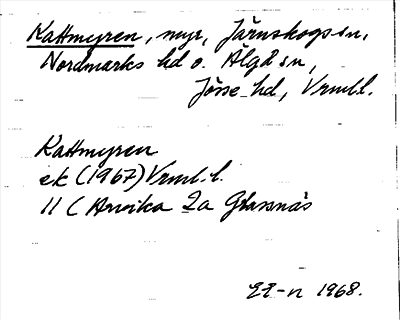 Kattmyren, myr, Järnskogs sn,
Nordmarks hd o. Älgå sn,
Jösse hd, Vrml.l.
Kattmyren
ek (1967) Vrml.l.
11 C Arvika 2a Glassnäs
1968.